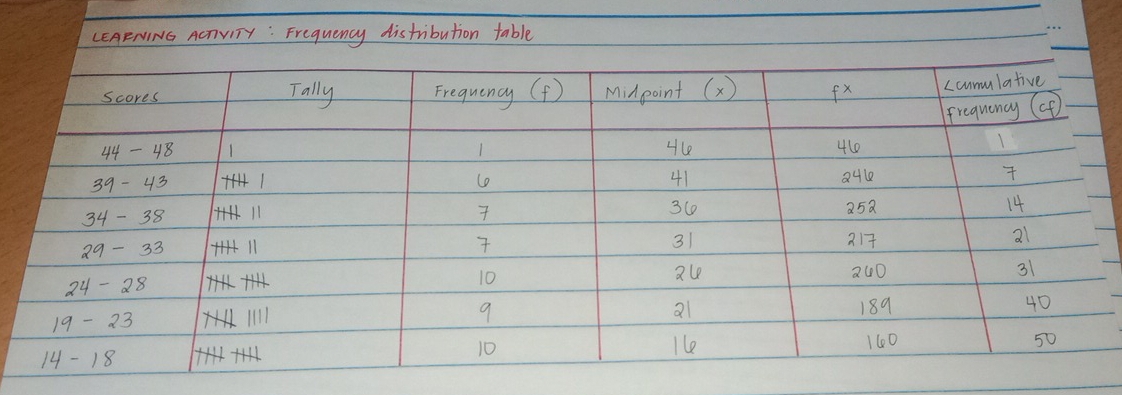 LEARNING ACTIVITY : Frequency distribution table
...
Scores Tally Frequency (f) Midpoint (x) fx Cumulative Frequency (cf)
44 - 48 | 1 46 46 1
39 - 43 |||| | 6 41 246 7
34 - 38 |||| || 7 36 252 14
29 - 33 |||| || 7 31 217 21
24 - 28 |||| |||| 10 26 260 31
19 - 23 |||| |||| 9 21 189 40
14 - 18 |||| |||| 10 16 160 50